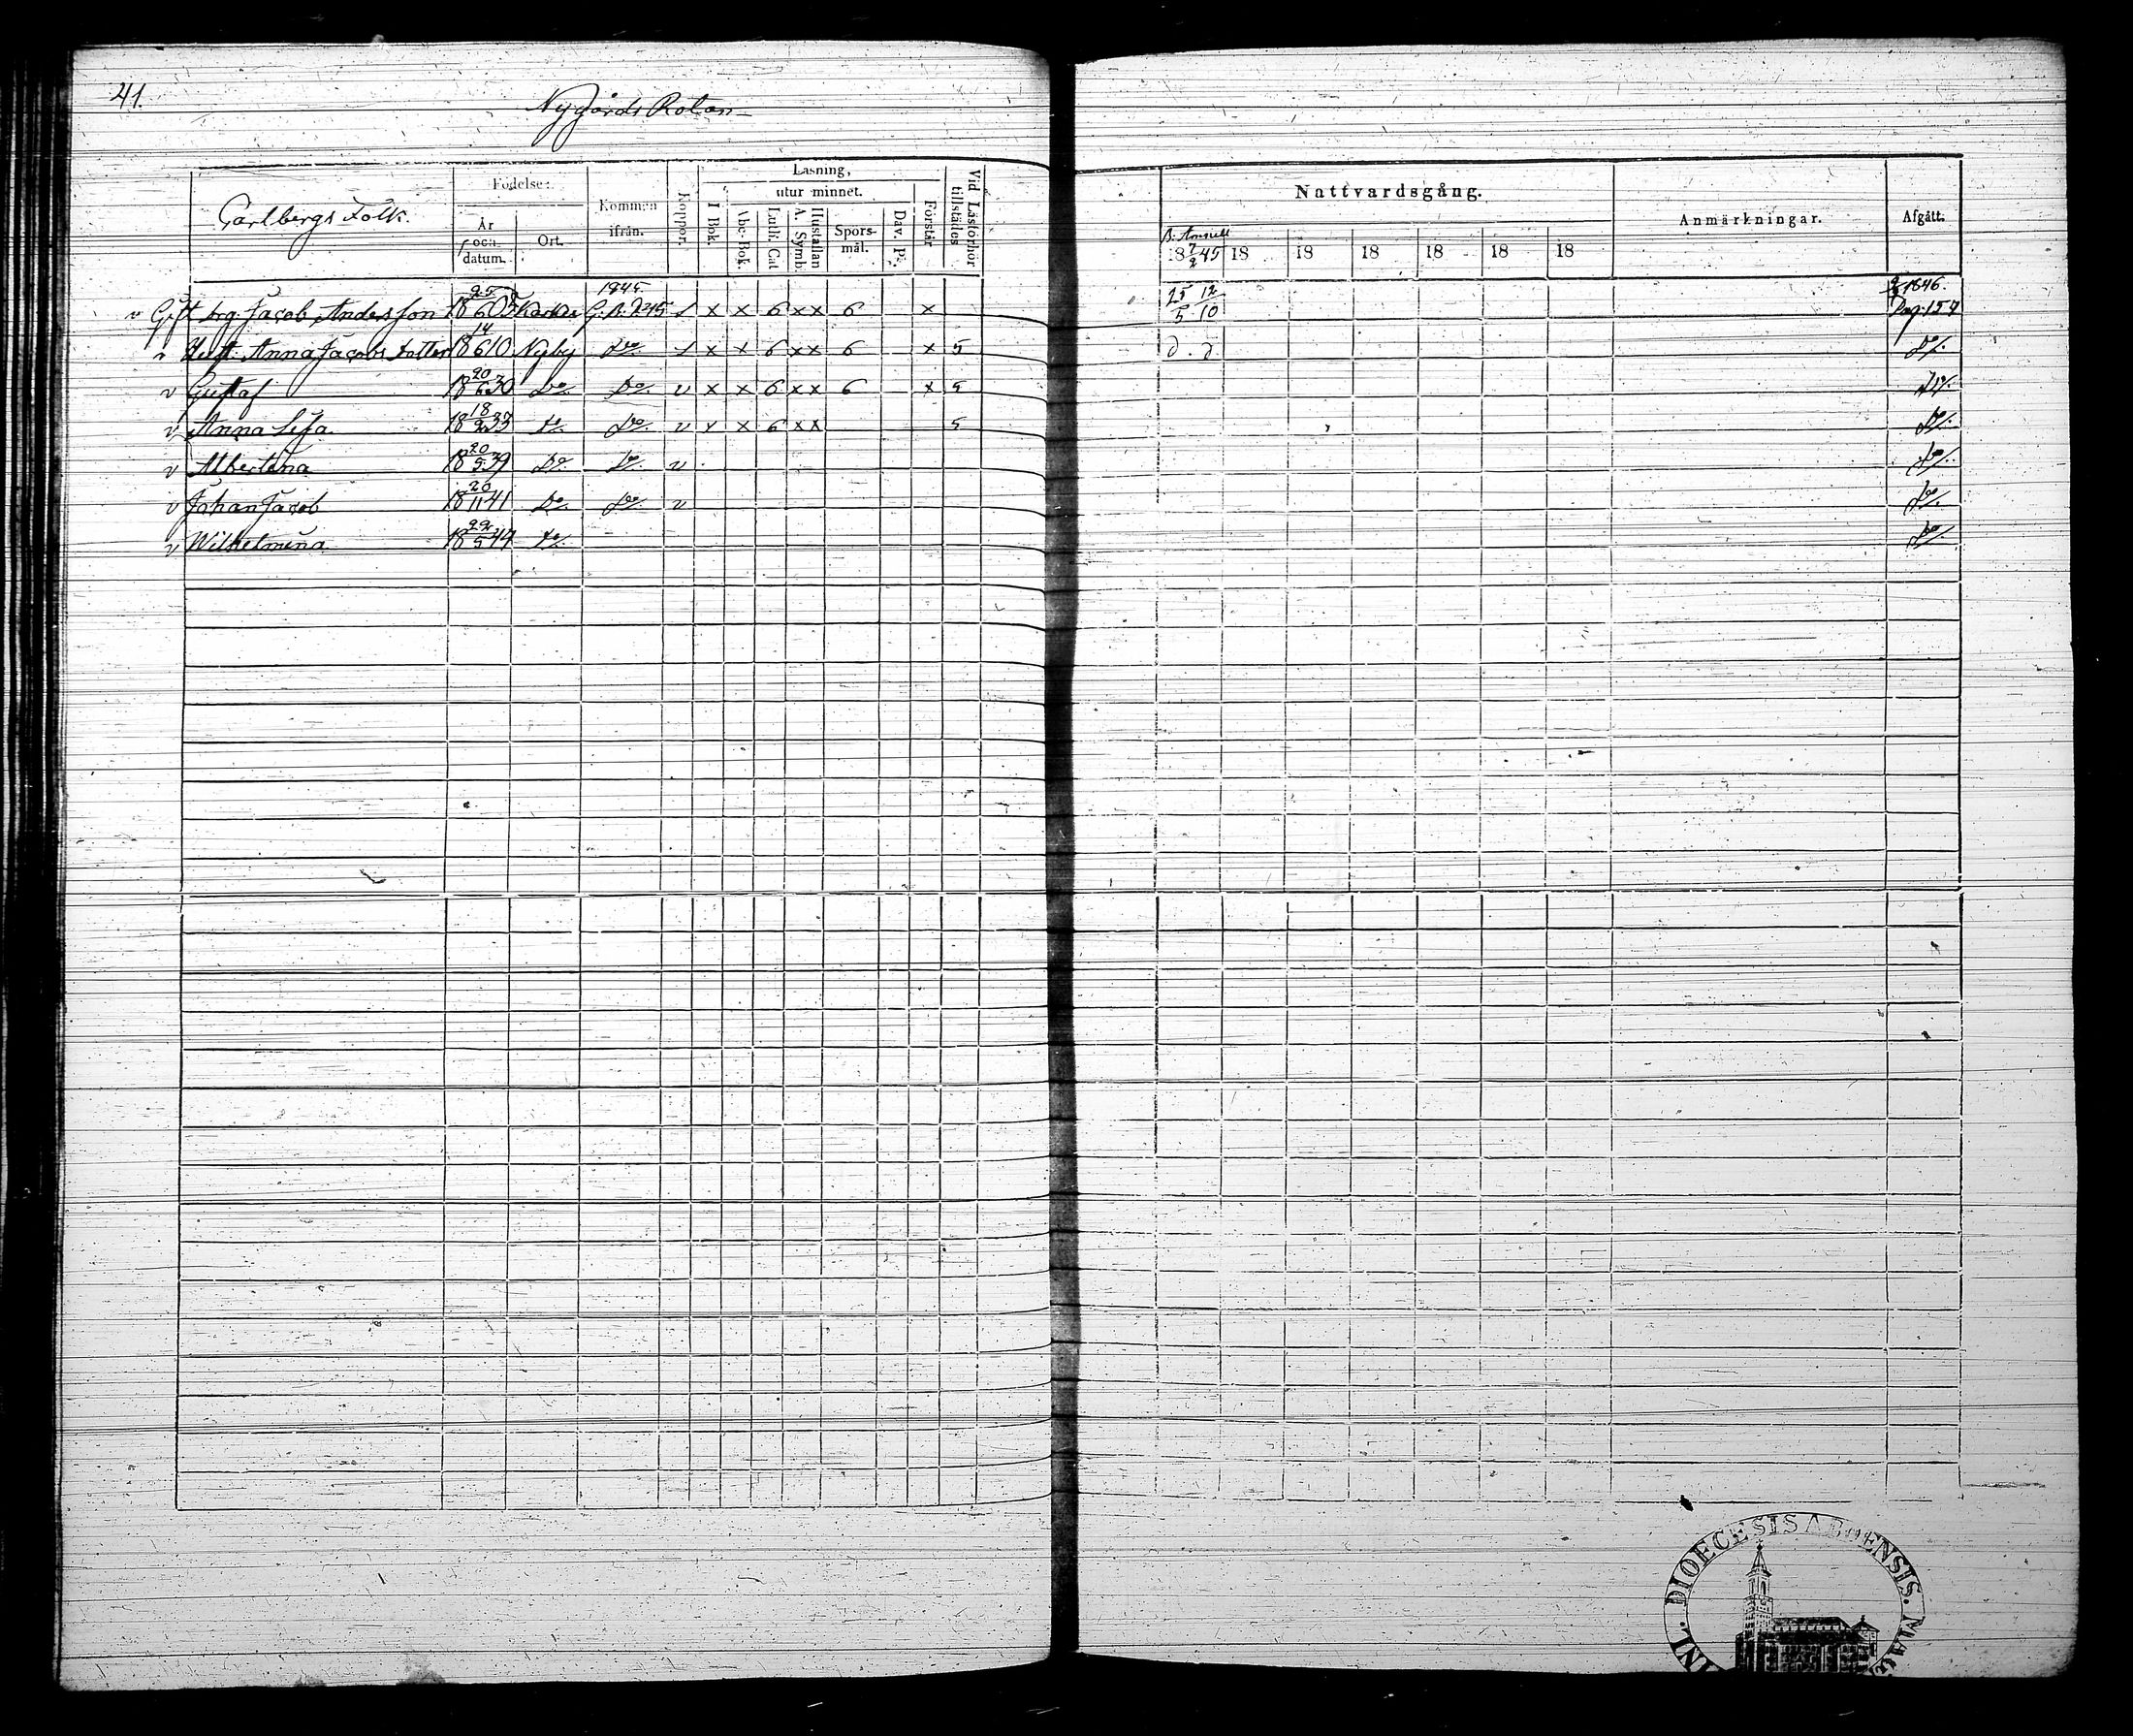 41.
Nygårds Rotan
Carlbergs Folk.
Födelse:
År och datum.
Ort.
Kommen ifrån.
Koppor.
Läsning,
utur minnet.
I Bok.
Abc-Bok.
Luth. Cat
Hustaflan A. Symb.
Spörs-mål.
Dav. Ps.
Förstår
Vid Läsförhör tillstädes
Nattvardsgång.
18 7/2 45 18 18 18 18 18 18
Anmärkningar.
Afgått.
v Gift drg Jacob Andersson 18 25/6 05 1845 G.B. 245 x x 6 xx 6 x 25/5 12/10 1846. Pag. 157
v Hust. Anna Jacobs dotter 18 14/6 10 Nyby Do x x 6 xx 6 x 5 d. d Do
v Gustaf 18 20/6 30 Do Do v x x 6 xx 6 x 5 Do
v Anna Lisa 18 18/2 33 Do Do v x x 6 xx 5 Do
v Albertina 18 20/5 39 Do Do v Do
v Johan Jacob 18 20/11 41 Do Do v Do
v Wilhelmina 18 29/5 44 Do Do
DIOECESIS ABOENSIS.